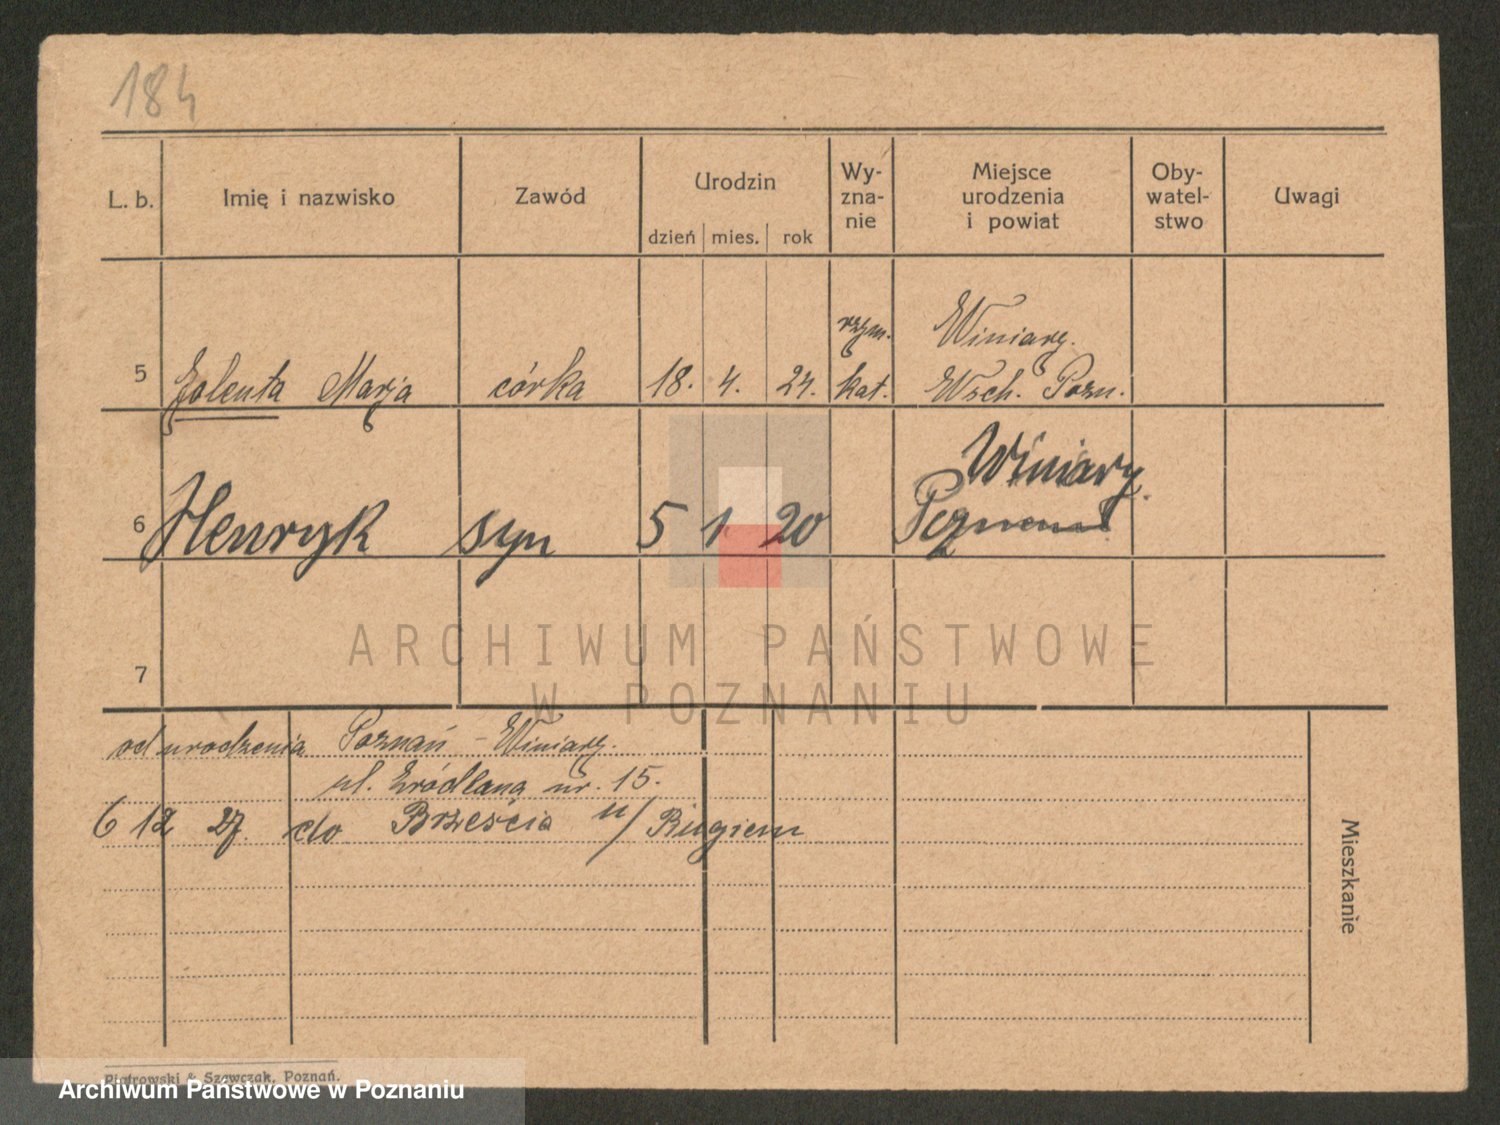 184
L. b. Imię i nazwisko Zawód Urodzin Wy-zna-nie Miejsce urodzenia i powiat Oby-watel-stwo Uwagi
dzień mies. rok
rzym. Winiary.
5 Jolenta Marja córka 18. 4. 24. kat. Wsch. Pozn.
Winiary.
6 Henryk syn 5 1 20
7
ARCHIWUM PAŃSTWOWE
W POZNANIU
od urodzenia Poznań - Winiary.
ul. Źródlana nr. 15.
6 12 27. do Brześcia n/ Bugiem
Mieszkanie
Piotrowski & Szewczak, Poznań.
Archiwum Państwowe w Poznaniu